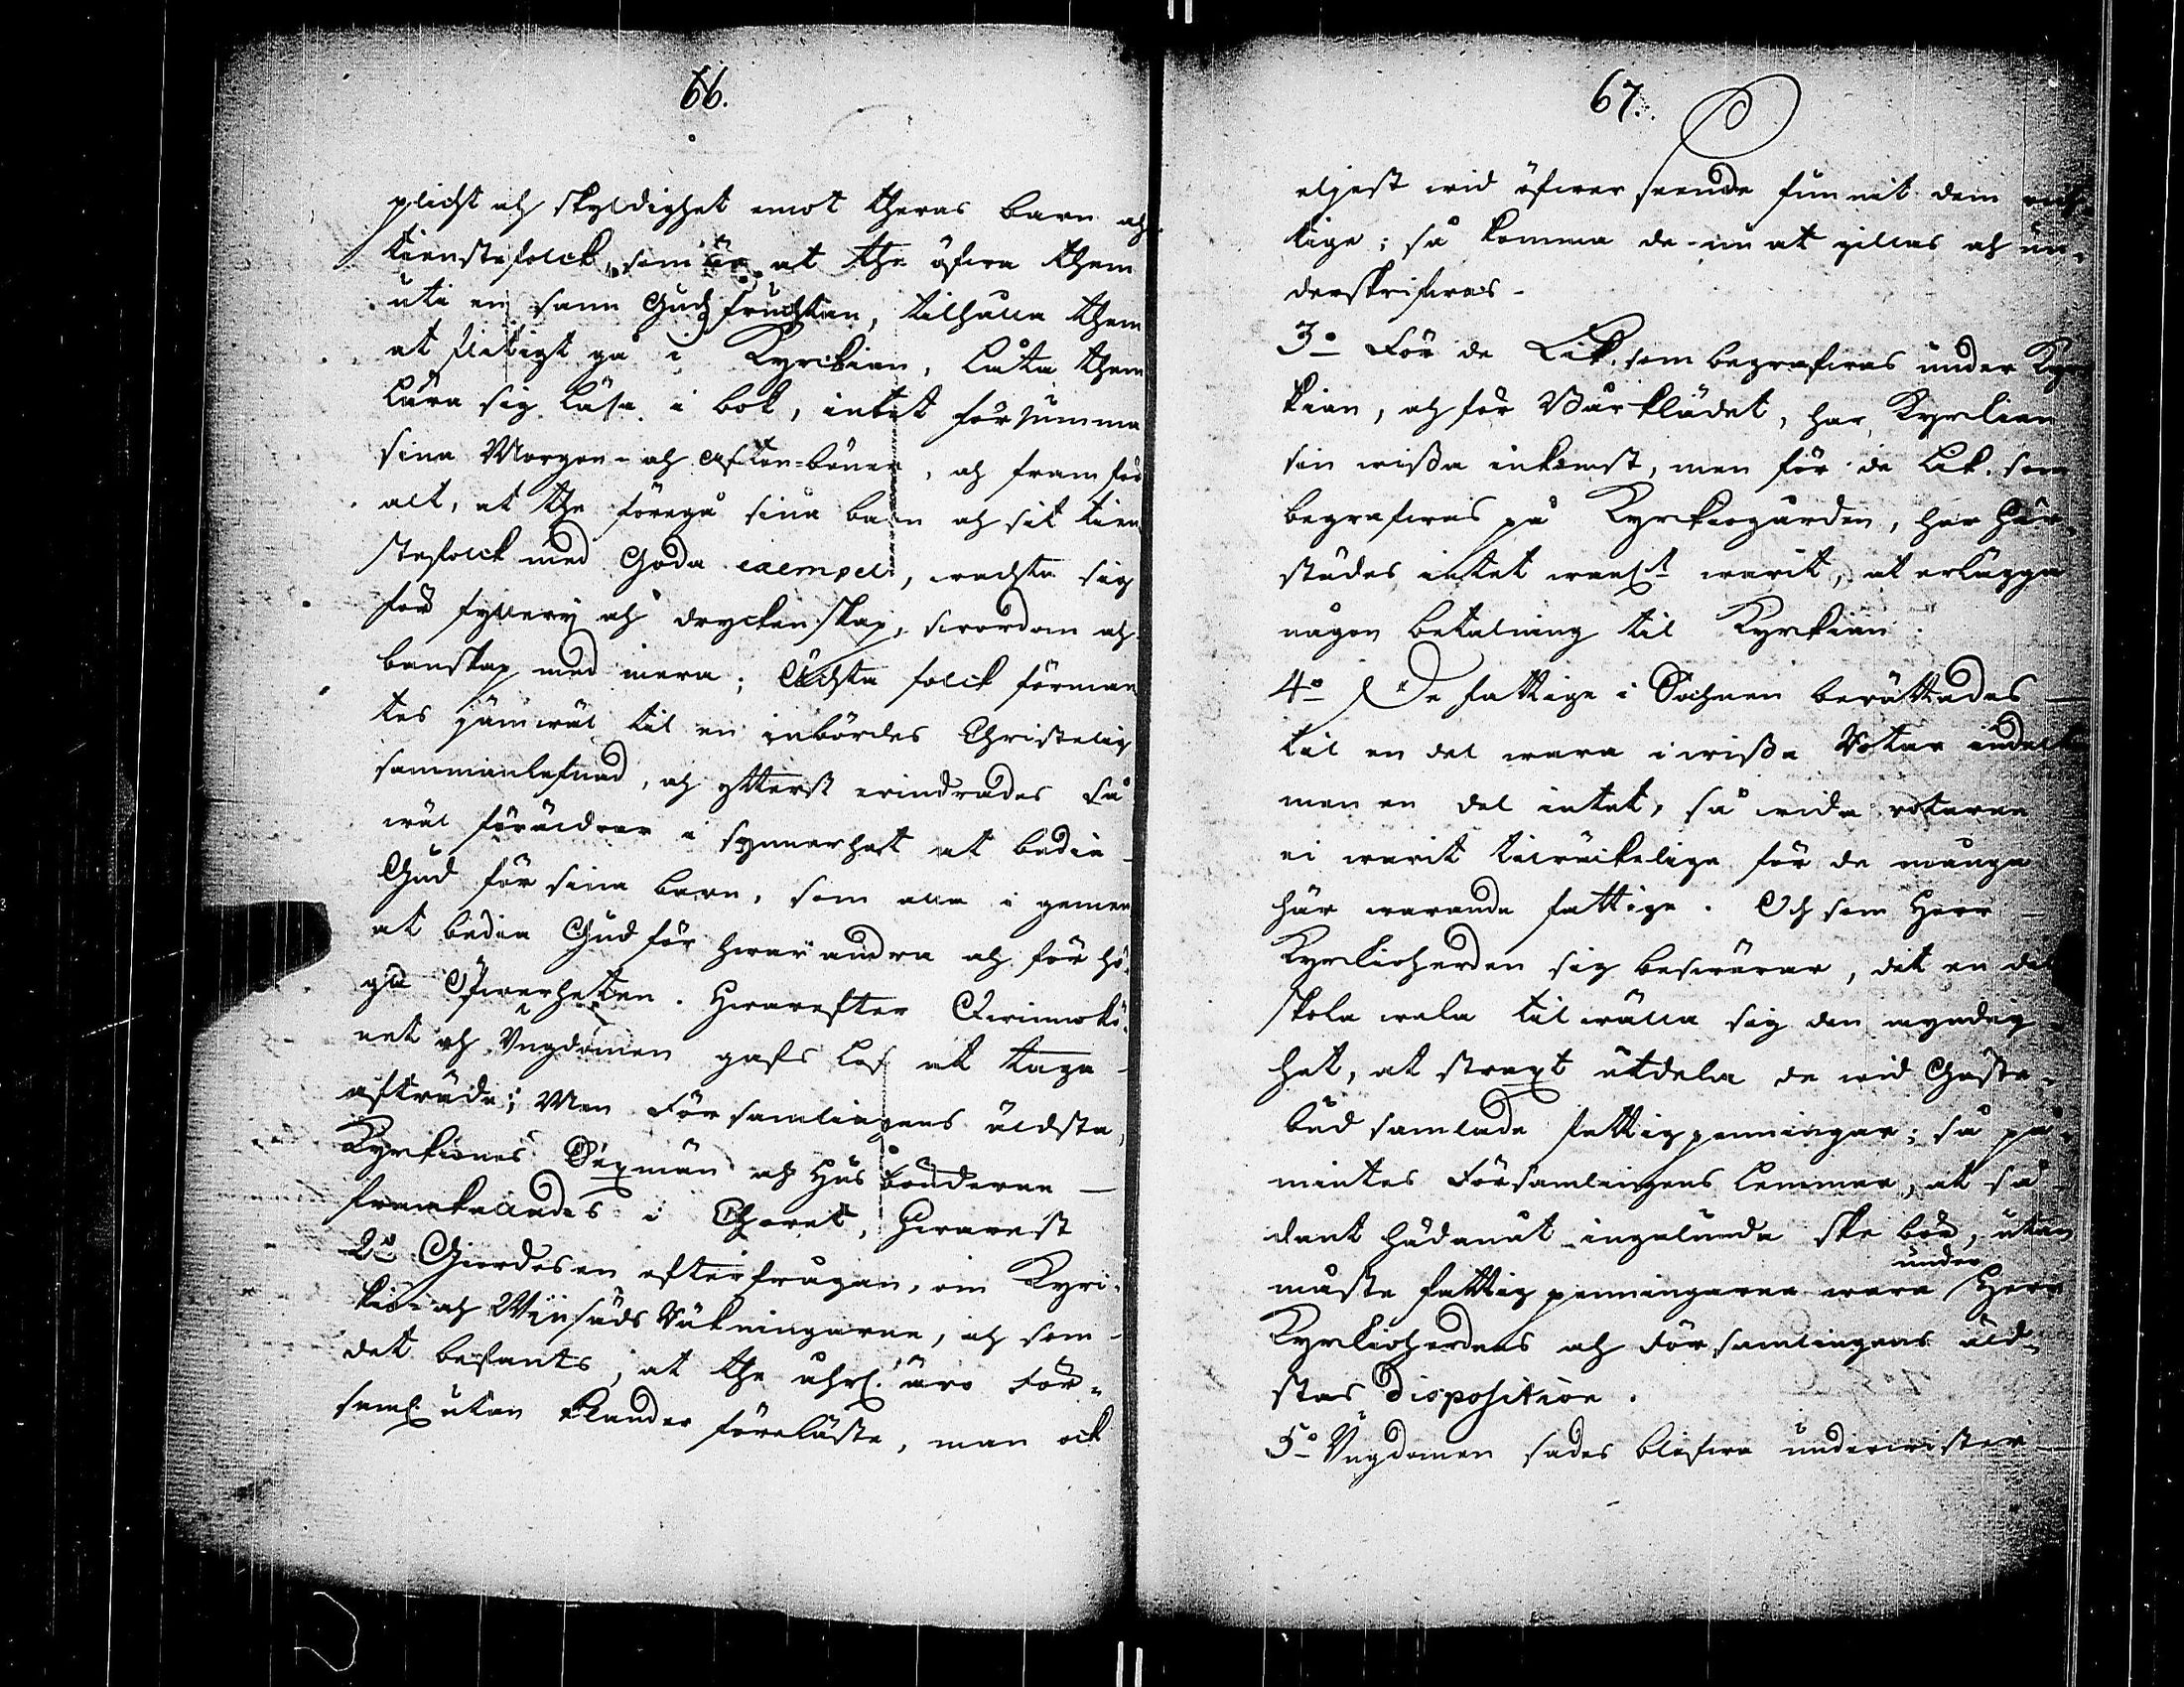 66.
plicht och skyldighet emot theras barn och
tienstefolck, som är at the öfwa them
uti en sann Gudz fruchtan, tilhålla them
at flitigt gå i Kyrckian, låta them
lära sig läsa i bok, intet försumma
sina Morgon- och Afton-böner, och framför
alt, at the föregå sina barn och sit tien
stefolck med Goda exempel, wachta sig
för fylleri och dryckenskap, swordom och
banskap med mera; Ächta folck förman
tes jämwäl til en inbördes Christelig
sammanlefnad, och ytterst erindrades så
wäl föräldrar i synnerhet at bedia
Gud för sina barn, som alla i gemen
at bedia Gud för hwar andra och för hö-
ga Öfwerheten. Hwarefter Qwinnokö-
net och Ungdomen gafs lof at taga
afträde; Men Församlingens äldsta,
Kyrkiones Sexmän och Husbönderne
framkallades i Choret, Hwarest
2o Giordes en efterfrågan, om Kyrc-
kio- och Winsäds Räkningarne, och som
det befants, at the åhrl. äro För-
saml. utan klander föreläste, man ock
67.
eljest wid öfwerseende funnit dem
tige; så komma de nu at gillas och un-
derskrifwas.
3o För de Lik som begrafwas under Kyr
kian, och för Bårklädet, har Kyrkian
sin wissa inkomst, men för de Lik som
begrafwas på Kyrkiogården, har här-
städes intet wanl:t warit, at erlägga
någon betalning til Kyrkian.
4o De fattige i Sochnen berättades
til en del wara i wissa Rotar indelte
men en del intet, så wida rotarne
ei warit tilräckelige för de många
här warande fattige. Och som Herr
Kyrkioherden sig beswärar, det en del
skola wela tilwälla sig den myndig
het, at straxt utdela de wid Gäste-
bud samlade fattigpenningar; så på-
mintes Församlingens Lemmar, at så-
dant hädanåt ingalunda ske bör, utan
måste fattigpenningarne wara under Herr
Kyrkioherdens och Församlingens äld-
stas disposition.
5o Ungdomen sades blifwa underwister